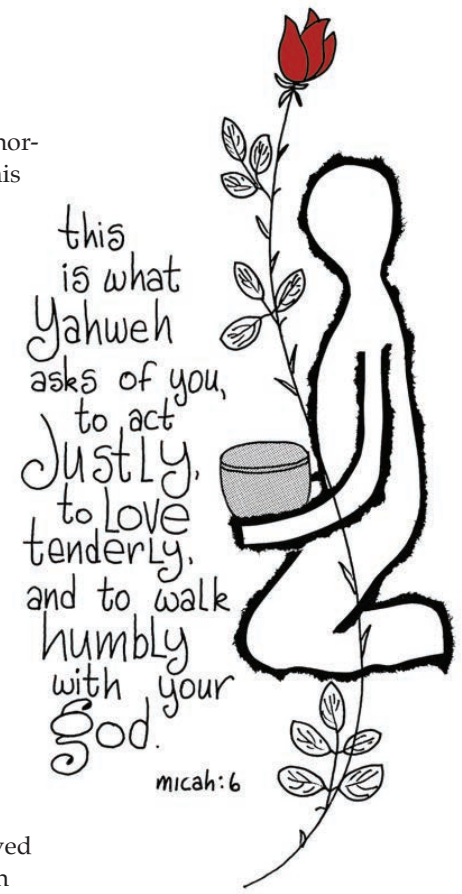 this
is what
Yahweh
asks of you,
to act
Justly,
to love
tenderly,
and to walk
humbly
with your
god.
micah:6